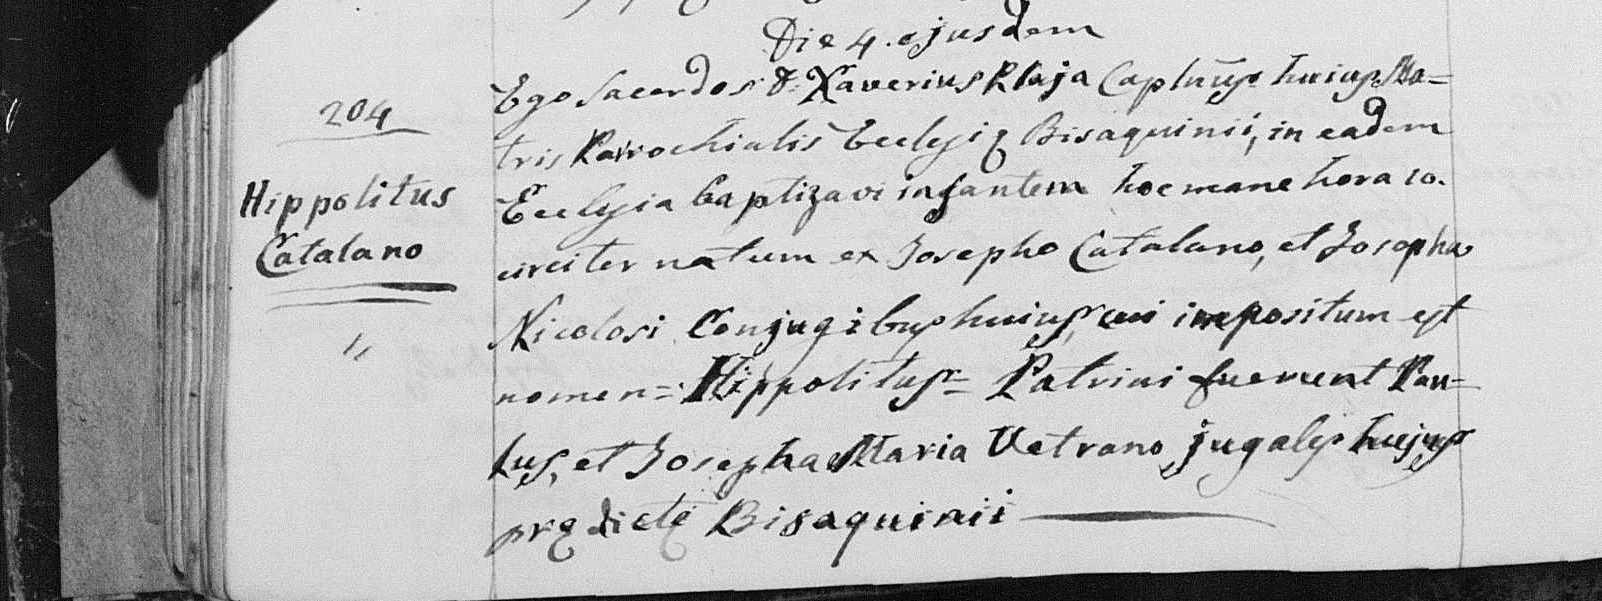 Die 4. ejusdem
204
Hippolitus
Catalano
Ego Sacerdos D. Xaverius Plaja Caplnus huius Ma=
tris Parrochialis Ecclesię Bisaquinii, in eadem
Ecclesia baptizavi infantem hoc mane hora 10.
circiter natum ex Josepho Catalano, et Josepha
Nicolosi Conjugibus huius, cui impositum est
nomen = Hippolitus = Patrini fuerunt Pau=
lus, et Josepha Maria Vetrano jugales hujus
prędictę Bisaquinii